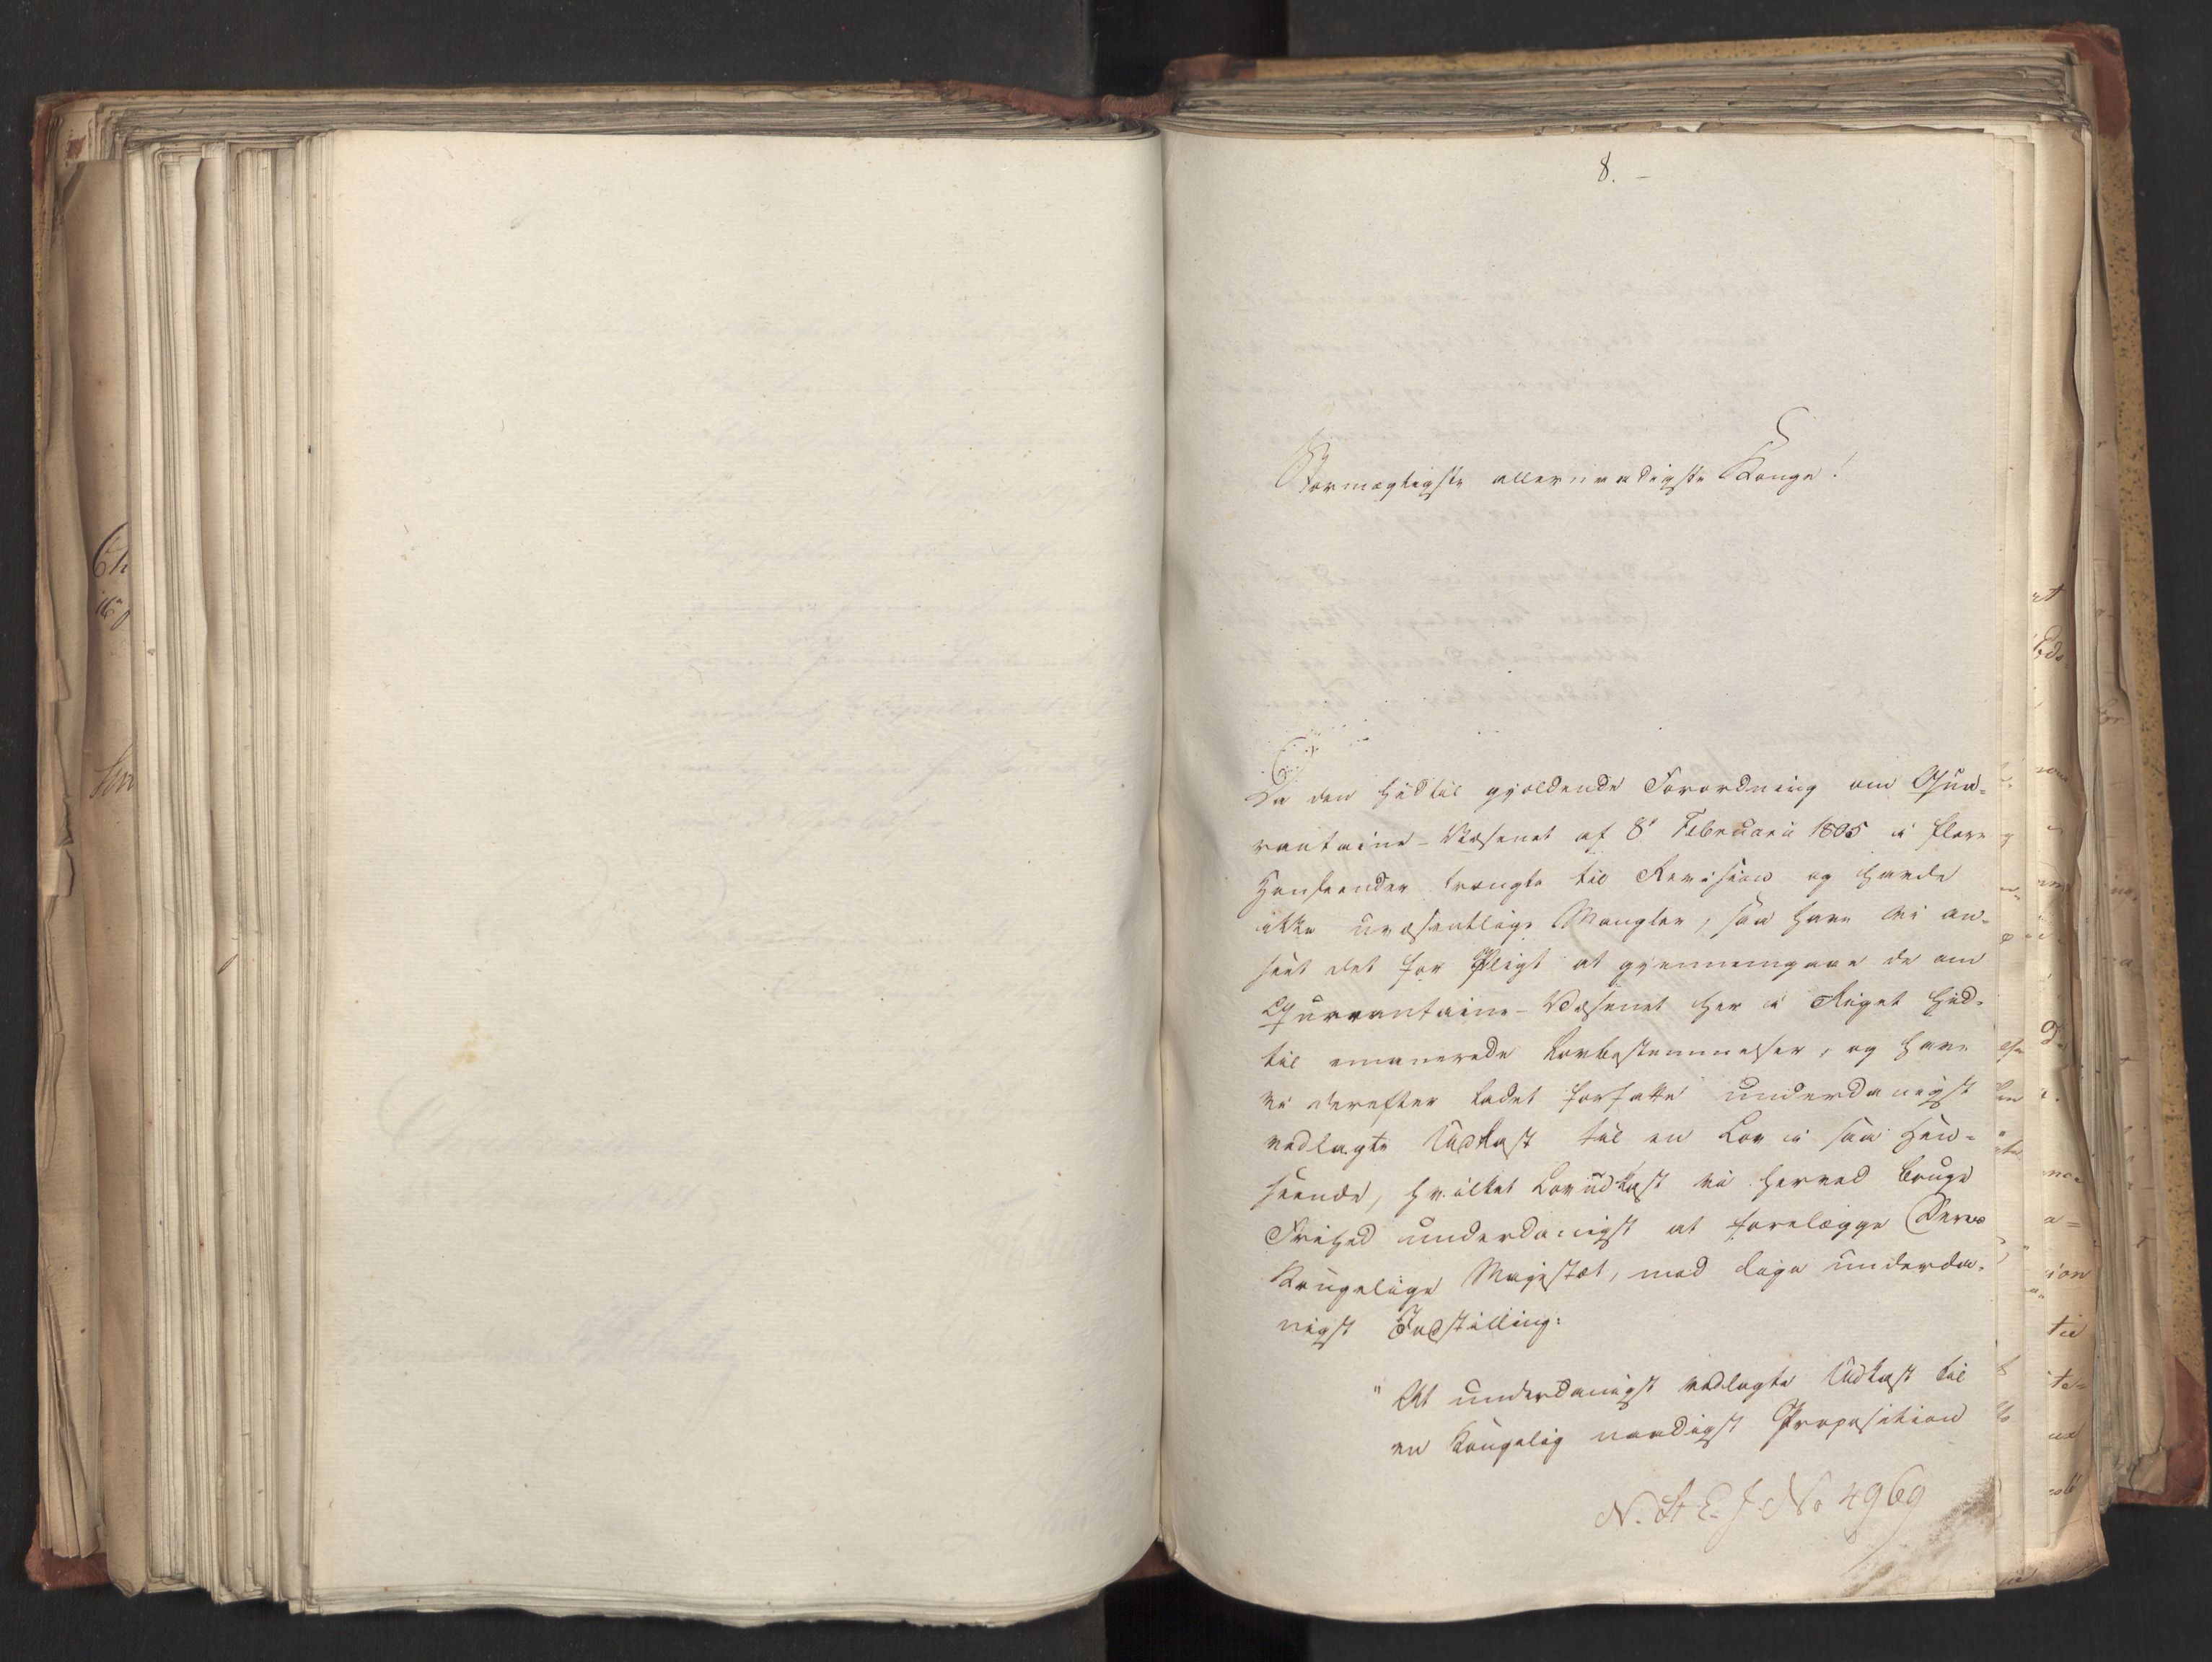 8. -
Stormægtigste allernaadigste Konge!
Da den hidtil gjeldende Forordning om Qua-
rantaine-Væsenet af 8de Februarii 1805 i flere
Henseender trængte til Revision og havde
ikke uvæsentlige Mangler, saa have Vi an-
seet det for Pligt at gjennemgaae de om
Quarantaine-Væsenet her i Riget hid-
til emanerede Lovbestemmelser, og have
vi derefter ladet forfatte underdanigst
vedlagte Udkast til en Lov i saa Hen-
seende, hvilket Lovudkast vi herved bruge
Frihed underdanigst at forelægge Deres
Kongelige Majestæt, med lige underda-
nigst Indstilling:
"At underdanigst vedlagte Udkast til
en Kongelig naadigst Proposition
N. St. E. J. No 4969